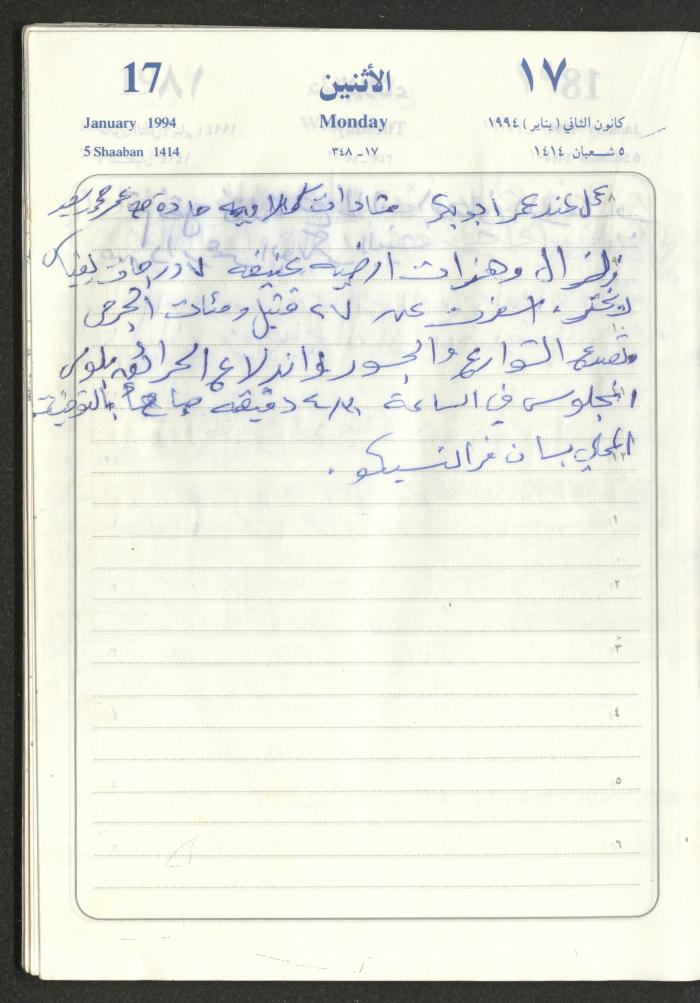 17 الأثنين ١٧
January 1994 Monday كانون الثاني (يناير) ١٩٩٤
5 Shaaban 1414 ١٧-٣٤٨ ٥ شعبان ١٤١٤
٨ عمل عند عمر ابو بكر مشادات كلامية حادة مع عمر محمد سعيد
زلزال وهزات ارضية عنيفة ٧ درجات بمقياس
ريختر، اسفرت عن ٢٧ قتيل ومئات الجرحى
تصدع الشوارع والجسور واندلاع الحرائق بلوس
انجلوس في الساعة ٤/٣٠ دقيقة صباحاً بالتوقيت
المحلي بسان فرانسيسكو.
١
٢
٣
٤
٥
٦